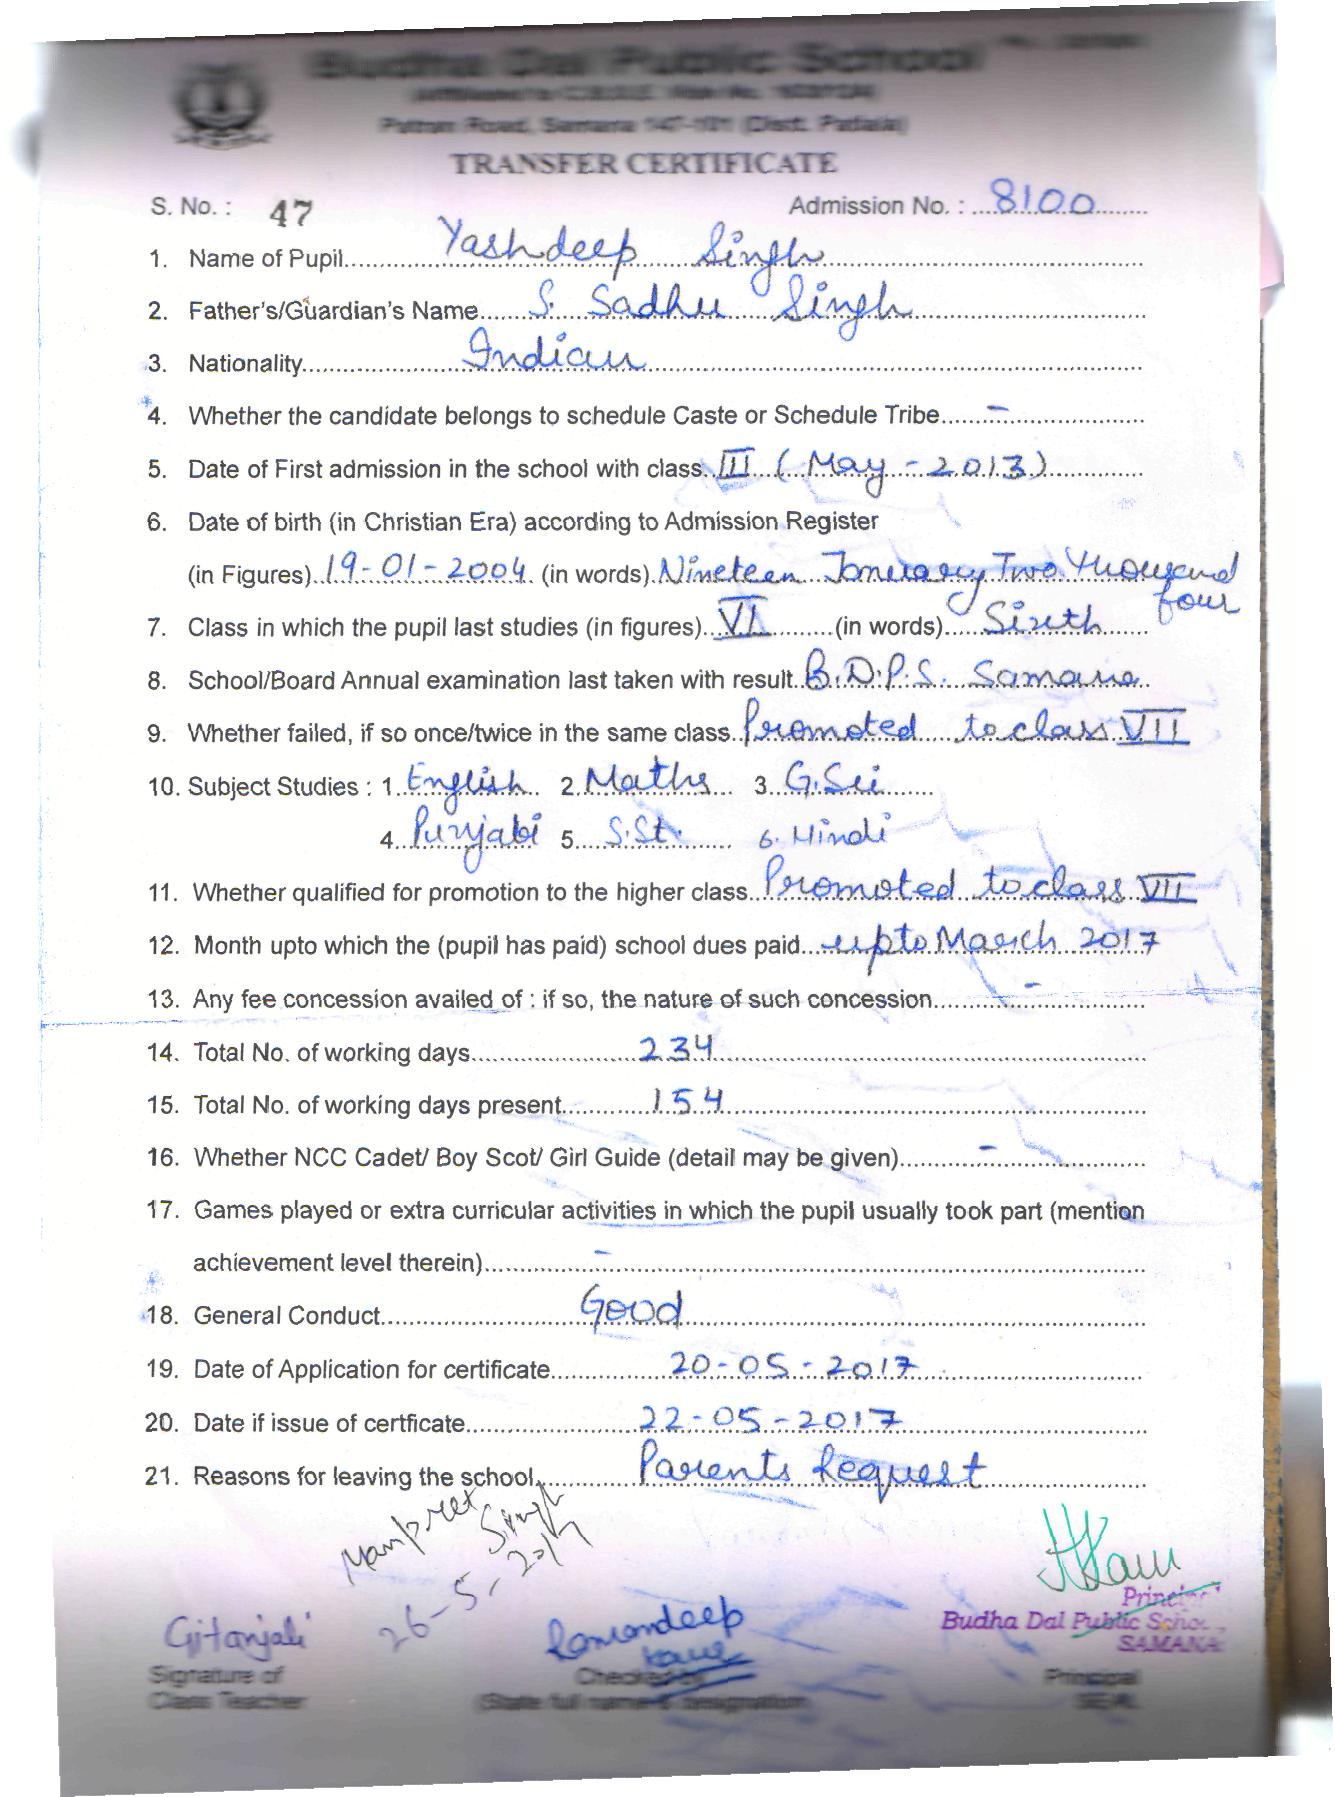 Budha Dal Public School
Patran Road, Samana 147-101 (Distt. Patiala)
TRANSFER CERTIFICATE
S. No. : 47 Admission No. : 8100
1. Name of Pupil Yashdeep Singh
2. Father's/Guardian's Name S. Sadhu Singh
3. Nationality Indian
4. Whether the candidate belongs to schedule Caste or Schedule Tribe -
5. Date of First admission in the school with class III (May - 2013)
6. Date of birth (in Christian Era) according to Admission Register
(in Figures) 19-01-2004 (in words) Nineteen January Two Thousand
four
7. Class in which the pupil last studies (in figures) VI (in words) Sixth
8. School/Board Annual examination last taken with result B.D.P.S. Samana
9. Whether failed, if so once/twice in the same class Promoted to class VII
10. Subject Studies : 1. English 2. Maths 3. G.Sci
4. Punjabi 5. S.St. 6. Hindi
11. Whether qualified for promotion to the higher class Promoted to class VII
12. Month upto which the (pupil has paid) school dues paid upto March 2017
13. Any fee concession availed of : if so, the nature of such concession -
14. Total No. of working days 234
15. Total No. of working days present 154
16. Whether NCC Cadet/ Boy Scot/ Girl Guide (detail may be given) -
17. Games played or extra curricular activities in which the pupil usually took part (mention
achievement level therein) -
18. General Conduct Good
19. Date of Application for certificate 20-05-2017
20. Date if issue of certficate 22-05-2017
21. Reasons for leaving the school Parents Request
Manpreet Singh
26-5-2017
Gitanjali Ramandeep Kaur
Principal
Budha Dal Public School,
SAMANA
Signature of Checked by Principal
Class Teacher (State full name & designation SEAL